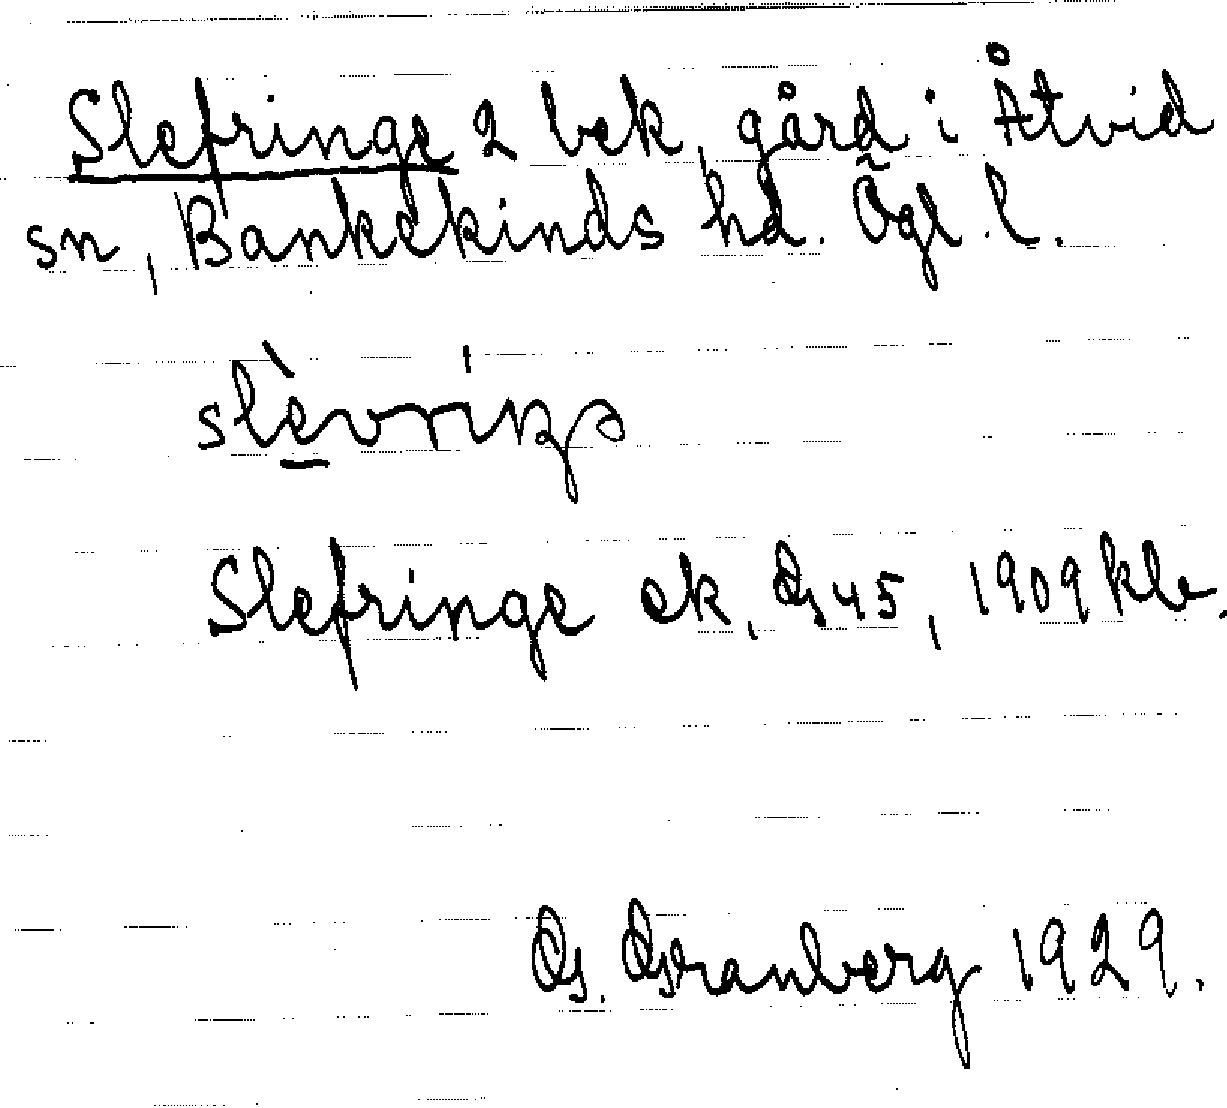 Slefringe 2 bek, gård i Åtvid
sn, Bankekinds hd. Ögl. l.
Slefringe ek, G 45, 1909 kbr.
G. Granberg 1929.